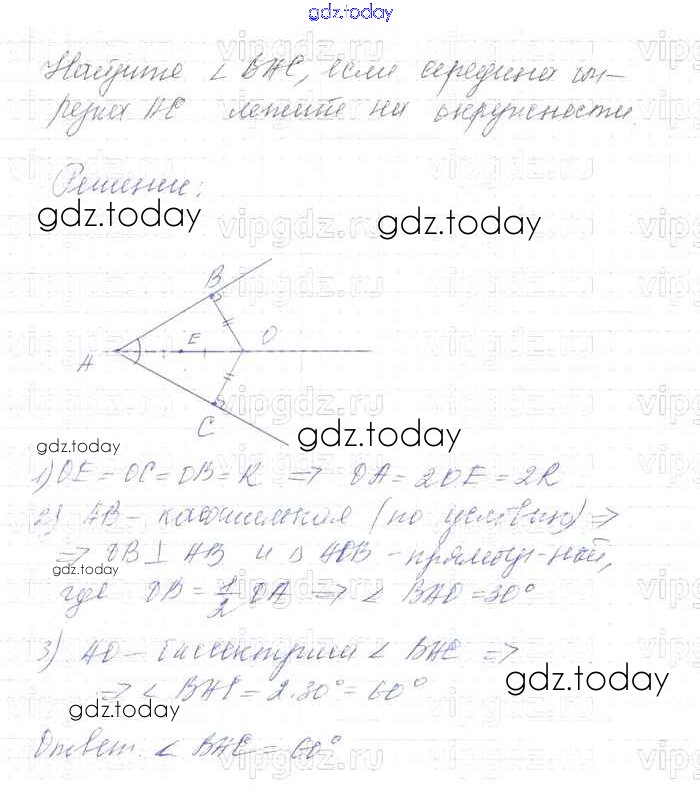 gdz.today
Найдите ∠ BAC, если середина от-
резка AC лежит на окружности.
Решение:
gdz.today
gdz.today
B
E
O
A
C
gdz.today
gdz.today
1) OE = OC = OB = R ⇒ OA = 2OE = 2R
2) AB - касательная (по условию) ⇒
⇒ OB ⊥ AB и △ AOB - прямоуг-ный,
gdz.today
где OB = 1/2 OA ⇒ ∠ BAO = 30°
3) AO - биссектрисой ∠ BAC ⇒
⇒ ∠ BAC = 2·30° = 60°
gdz.today
gdz.today
Ответ ∠ BAC = 60°
vipgdz.ru